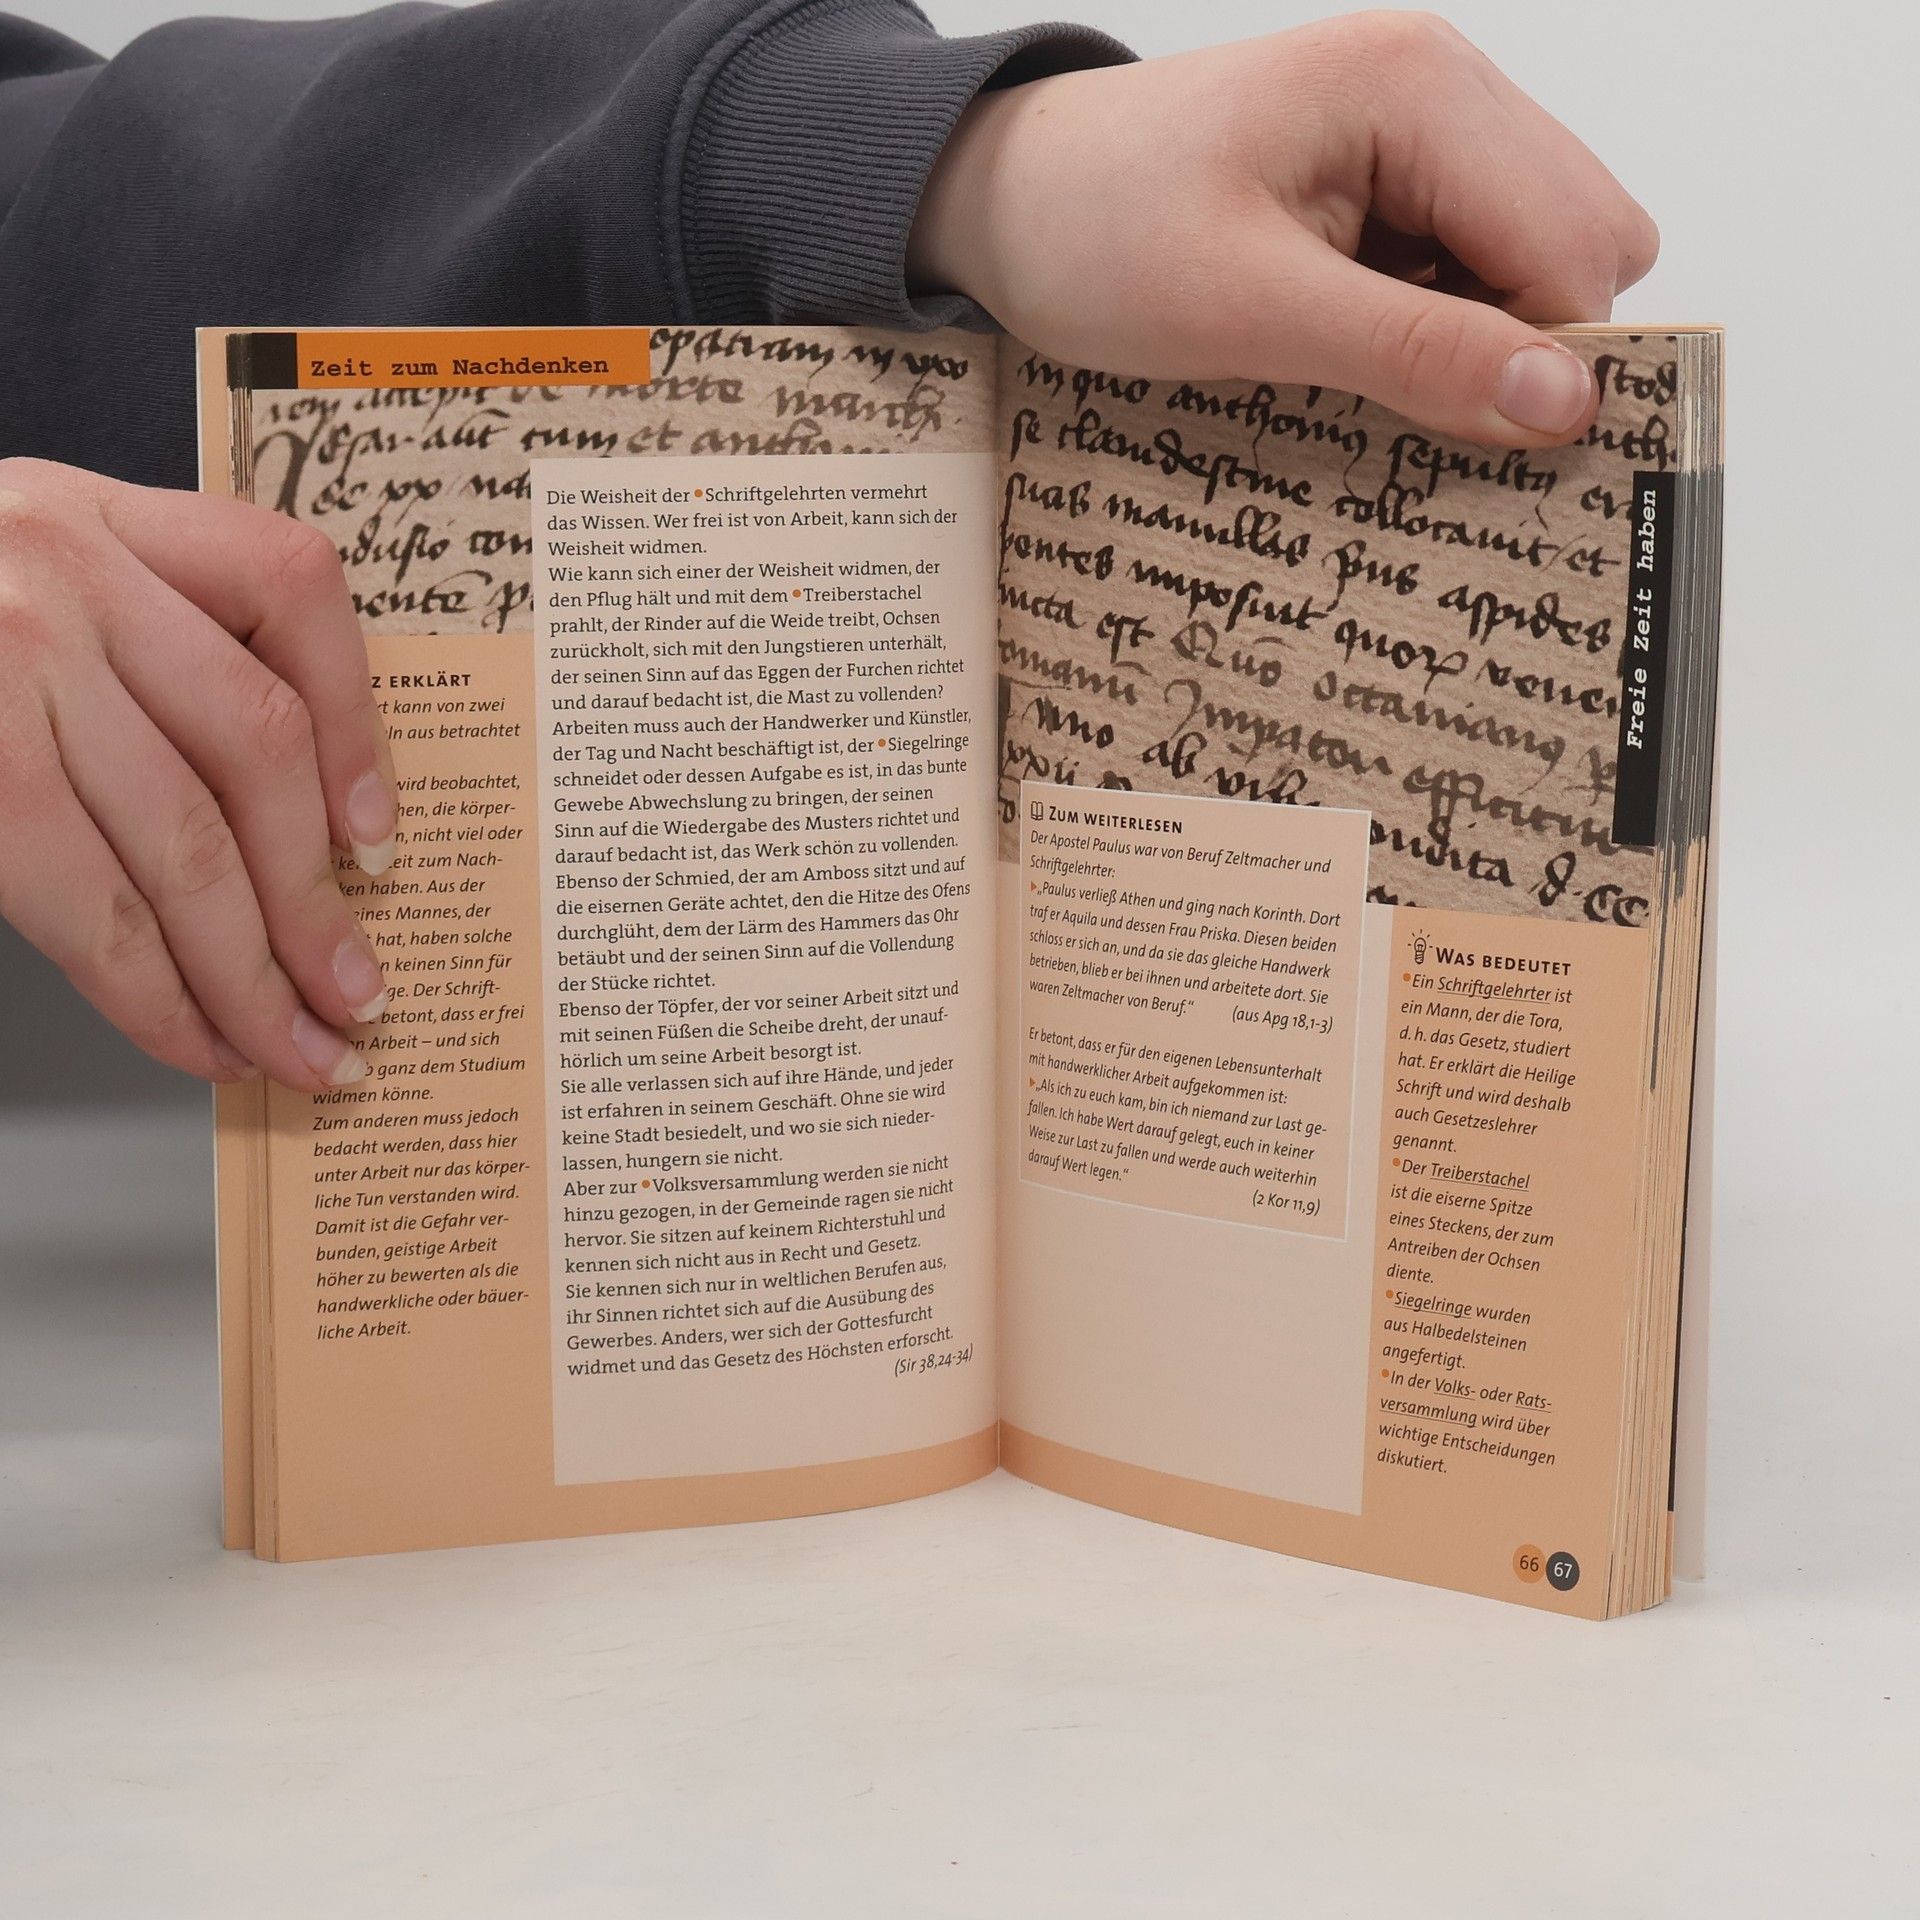 Zeit zum Nachdenken
Z ERKLÄRT
kann von zwei
aus betrachtet
wird beobachtet,
die körper-
nicht viel oder
zum Nach-
haben. Aus der
eines Mannes, der
hat, haben solche
keinen Sinn für
Der Schrift-
betont, dass er frei
Arbeit – und sich
ganz dem Studium
widmen könne.
Zum anderen muss jedoch
bedacht werden, dass hier
unter Arbeit nur das körper-
liche Tun verstanden wird.
Damit ist die Gefahr ver-
bunden, geistige Arbeit
höher zu bewerten als die
handwerkliche oder bäuer-
liche Arbeit.
Die Weisheit der •Schriftgelehrten vermehrt
das Wissen. Wer frei ist von Arbeit, kann sich der
Weisheit widmen.
Wie kann sich einer der Weisheit widmen, der
den Pflug hält und mit dem •Treiberstachel
prahlt, der Rinder auf die Weide treibt, Ochsen
zurückholt, sich mit den Jungstieren unterhält,
der seinen Sinn auf das Eggen der Furchen richtet
und darauf bedacht ist, die Mast zu vollenden?
Arbeiten muss auch der Handwerker und Künstler,
der Tag und Nacht beschäftigt ist, der •Siegelringe
schneidet oder dessen Aufgabe es ist, in das bunte
Gewebe Abwechslung zu bringen, der seinen
Sinn auf die Wiedergabe des Musters richtet und
darauf bedacht ist, das Werk schön zu vollenden.
Ebenso der Schmied, der am Amboss sitzt und auf
die eisernen Geräte achtet, den die Hitze des Ofens
durchglüht, dem der Lärm des Hammers das Ohr
betäubt und der seinen Sinn auf die Vollendung
der Stücke richtet.
Ebenso der Töpfer, der vor seiner Arbeit sitzt und
mit seinen Füßen die Scheibe dreht, der unauf-
hörlich um seine Arbeit besorgt ist.
Sie alle verlassen sich auf ihre Hände, und jeder
ist erfahren in seinem Geschäft. Ohne sie wird
keine Stadt besiedelt, und wo sie sich nieder-
lassen, hungern sie nicht.
Aber zur •Volksversammlung werden sie nicht
hinzu gezogen, in der Gemeinde ragen sie nicht
hervor. Sie sitzen auf keinem Richterstuhl und
kennen sich nicht aus in Recht und Gesetz.
Sie kennen sich nur in weltlichen Berufen aus,
ihr Sinnen richtet sich auf die Ausübung des
Gewerbes. Anders, wer sich der Gottesfurcht
widmet und das Gesetz des Höchsten erforscht.
(Sir 38,24-34)
Freie Zeit haben
ZUM WEITERLESEN
Der Apostel Paulus war von Beruf Zeltmacher und
Schriftgelehrter:
„Paulus verließ Athen und ging nach Korinth. Dort
traf er Aquila und dessen Frau Priska. Diesen beiden
schloss er sich an, und da sie das gleiche Handwerk
betrieben, blieb er bei ihnen und arbeitete dort. Sie
waren Zeltmacher von Beruf.“ (aus Apg 18,1-3)
Er betont, dass er für den eigenen Lebensunterhalt
mit handwerklicher Arbeit aufgekommen ist:
„Als ich zu euch kam, bin ich niemand zur Last ge-
fallen. Ich habe Wert darauf gelegt, euch in keiner
Weise zur Last zu fallen und werde auch weiterhin
darauf Wert legen.“
(2 Kor 11,9)
WAS BEDEUTET
•Ein Schriftgelehrter ist
ein Mann, der die Tora,
d. h. das Gesetz, studiert
hat. Er erklärt die Heilige
Schrift und wird deshalb
auch Gesetzeslehrer
genannt.
•Der Treiberstachel
ist die eiserne Spitze
eines Steckens, der zum
Antreiben der Ochsen
diente.
•Siegelringe wurden
aus Halbedelsteinen
angefertigt.
•In der Volks- oder Rats-
versammlung wird über
wichtige Entscheidungen
diskutiert.
66 67